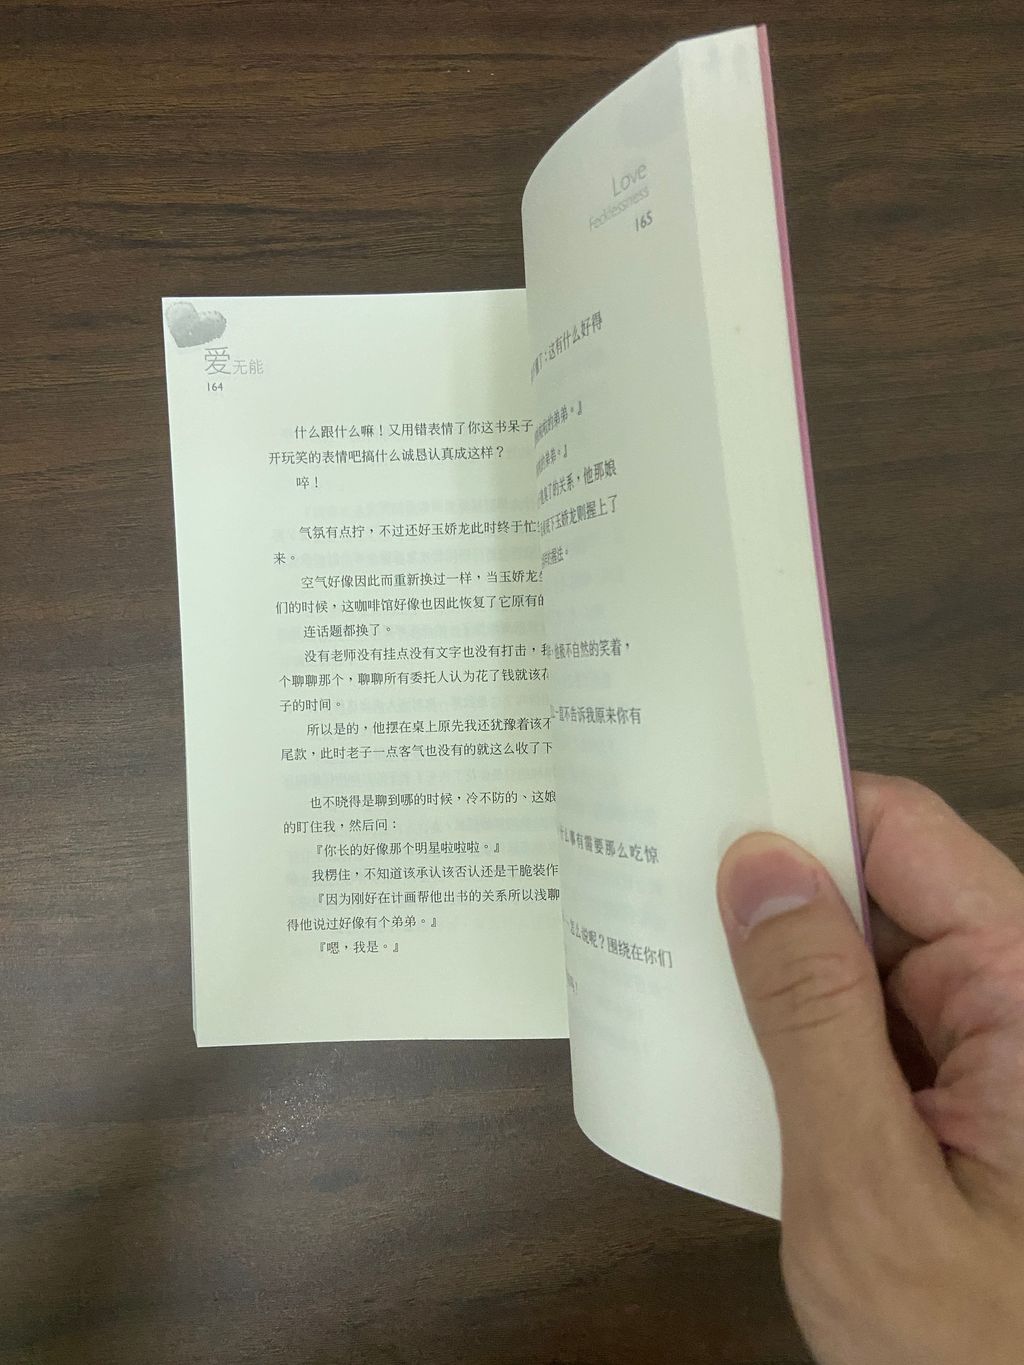 爱无能
164
什么跟什么嘛！又用错表情了你这书呆子
开玩笑的表情吧搞什么诚恳认真成这样？
啐！
气氛有点拧，不过还好玉娇龙此时终于忙
来。
空气好像因此而重新换过一样，当玉娇龙
们的时候，这咖啡馆好像也因此恢复了它原有的
连话题都换了。
没有老师没有挂点没有文字也没有打击，我
个聊聊那个，聊聊所有委托人认为花了钱就该花
子的时间。
所以是的，他摆在桌上原先我还犹豫着该不
尾款，此时老子一点客气也没有的就这么收了下
也不晓得是聊到哪的时候，冷不防的、这娘
的盯住我，然后问：
『你长的好像那个明星啦啦啦。』
我楞住，不知道该承认该否认还是干脆装作
『因为刚好在计画帮他出书的关系所以浅聊
得他说过好像有个弟弟。』
『嗯，我是。』
Love
Fecklessness
165
了：这有什么好得
的弟弟。』
的弟弟。』
了的关系，他那娘
下玉娇龙则握上了
的握住。
他极不自然的笑着，
一直不告诉我原来你有
什么事有需要那么吃惊
怎么说呢？围绕在你们